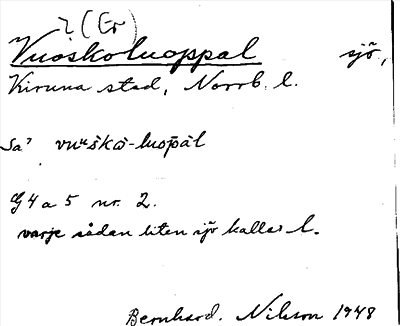 ? (Er)
Vuoskoluoppal sjö,
Kiruna stad, Norrb. l.
Sa? vuᵘškɷ̄-luop̄āl
G4a5 nr. 2.
varje sådan liten sjö kallas l.
Bernhard. Nilsson 1948